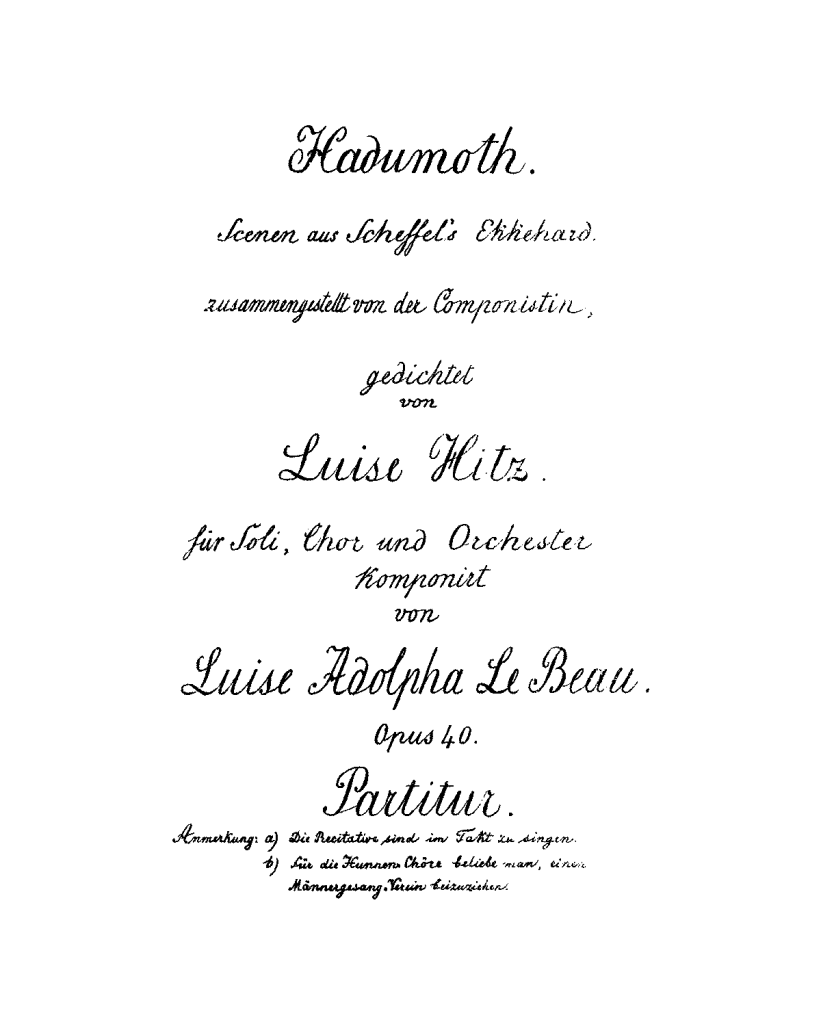 Hadumoth.
Scenen aus Scheffel's Ekkehard.
zusammengestellt von der Componistin,
gedichtet
von
Luise Hitz.
für Soli, Chor und Orchester
komponirt
von
Luise Adolpha Le Beau.
Opus 40.
Partitur.
Anmerkung: a) Die Recitative sind im Takt zu singen.
b) Für die Hunnen-Chöre beliebe man, einen
Männergesang-Verein beizuziehen.